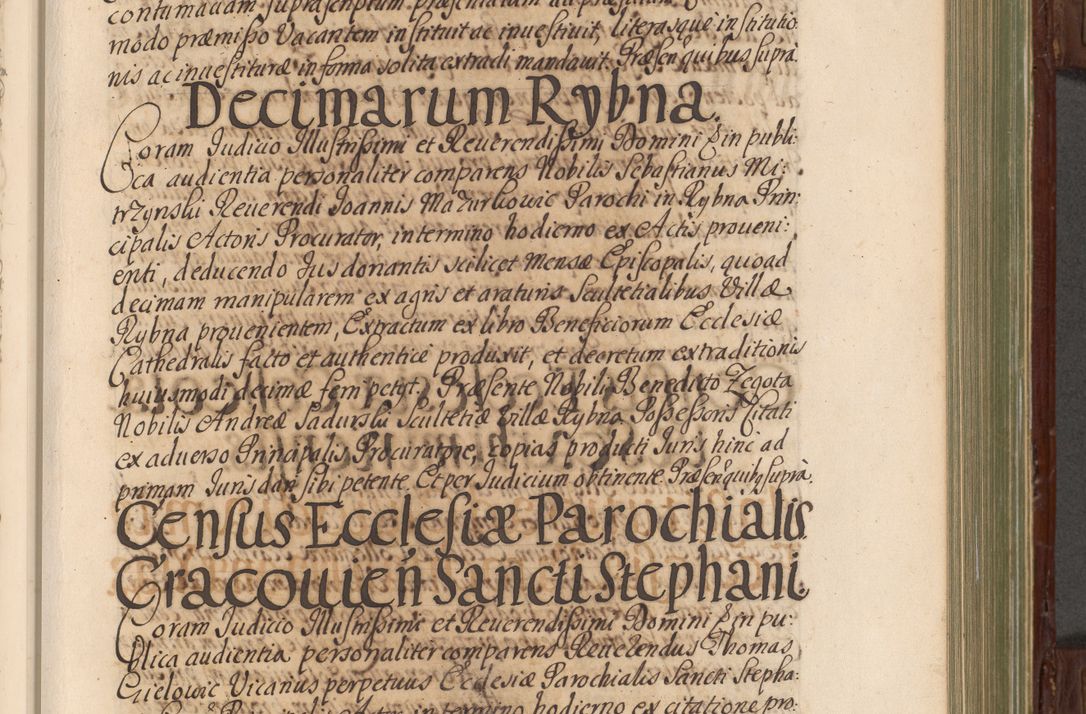 contumaciam suprascriptum præsentatum ad præsen
modo præmisso Vacantem instituit ac inuestiuit, literasque institutio
nis ac inuestituræ in forma solita extradi mandauit. Præsen: quibus supra.
Decimarum Rybna.
Coram Iudicio Illustrissimi et Reuerendissimi Domini & in publi:
ca audientia personaliter comparens Nobilis Sebastianus Mi:
trzynski Reuerendi Joannis Mazurkowic Parochi in Rybna Prin:
cipalis Actoris Procurator, in termino hodierno ex Actis proueni:
enti, deducendo Jus donantis scilicet Mensæ Episcopalis, quoad
decimam manipularem ex agris et araturis Scultetialibus Villæ
Rybna prouenientem, Extractum ex libro Beneficiorum Ecclesiæ
Cathedralis facto et authentice produxit, et decretum extraditionis
huiusmodi decimæ ferri petijt. Præsente Nobili Benedicto Zegota
Nobilis Andreæ Sadurski Scultetiæ Villæ Rybna Possessoris Citati
ex aduerso Principalis Procuratore, copias producti Juris hinc ad
primam Juris dari sibi petente. Et per Iudicium obtinente. Præsen: quibq supra.
Census Ecclesiæ Parochialis
Cracouien Sancti Stephani
Coram Iudicio Illustrissimi et Reuerendissimi Domini & in pu:
blica audientia personaliter comparens Reuerendus Thomas
Cielowic Vicarius perpetuus Ecclesiæ Parochialis Sancti Stepha:
termino hodierno ex citatione pro: